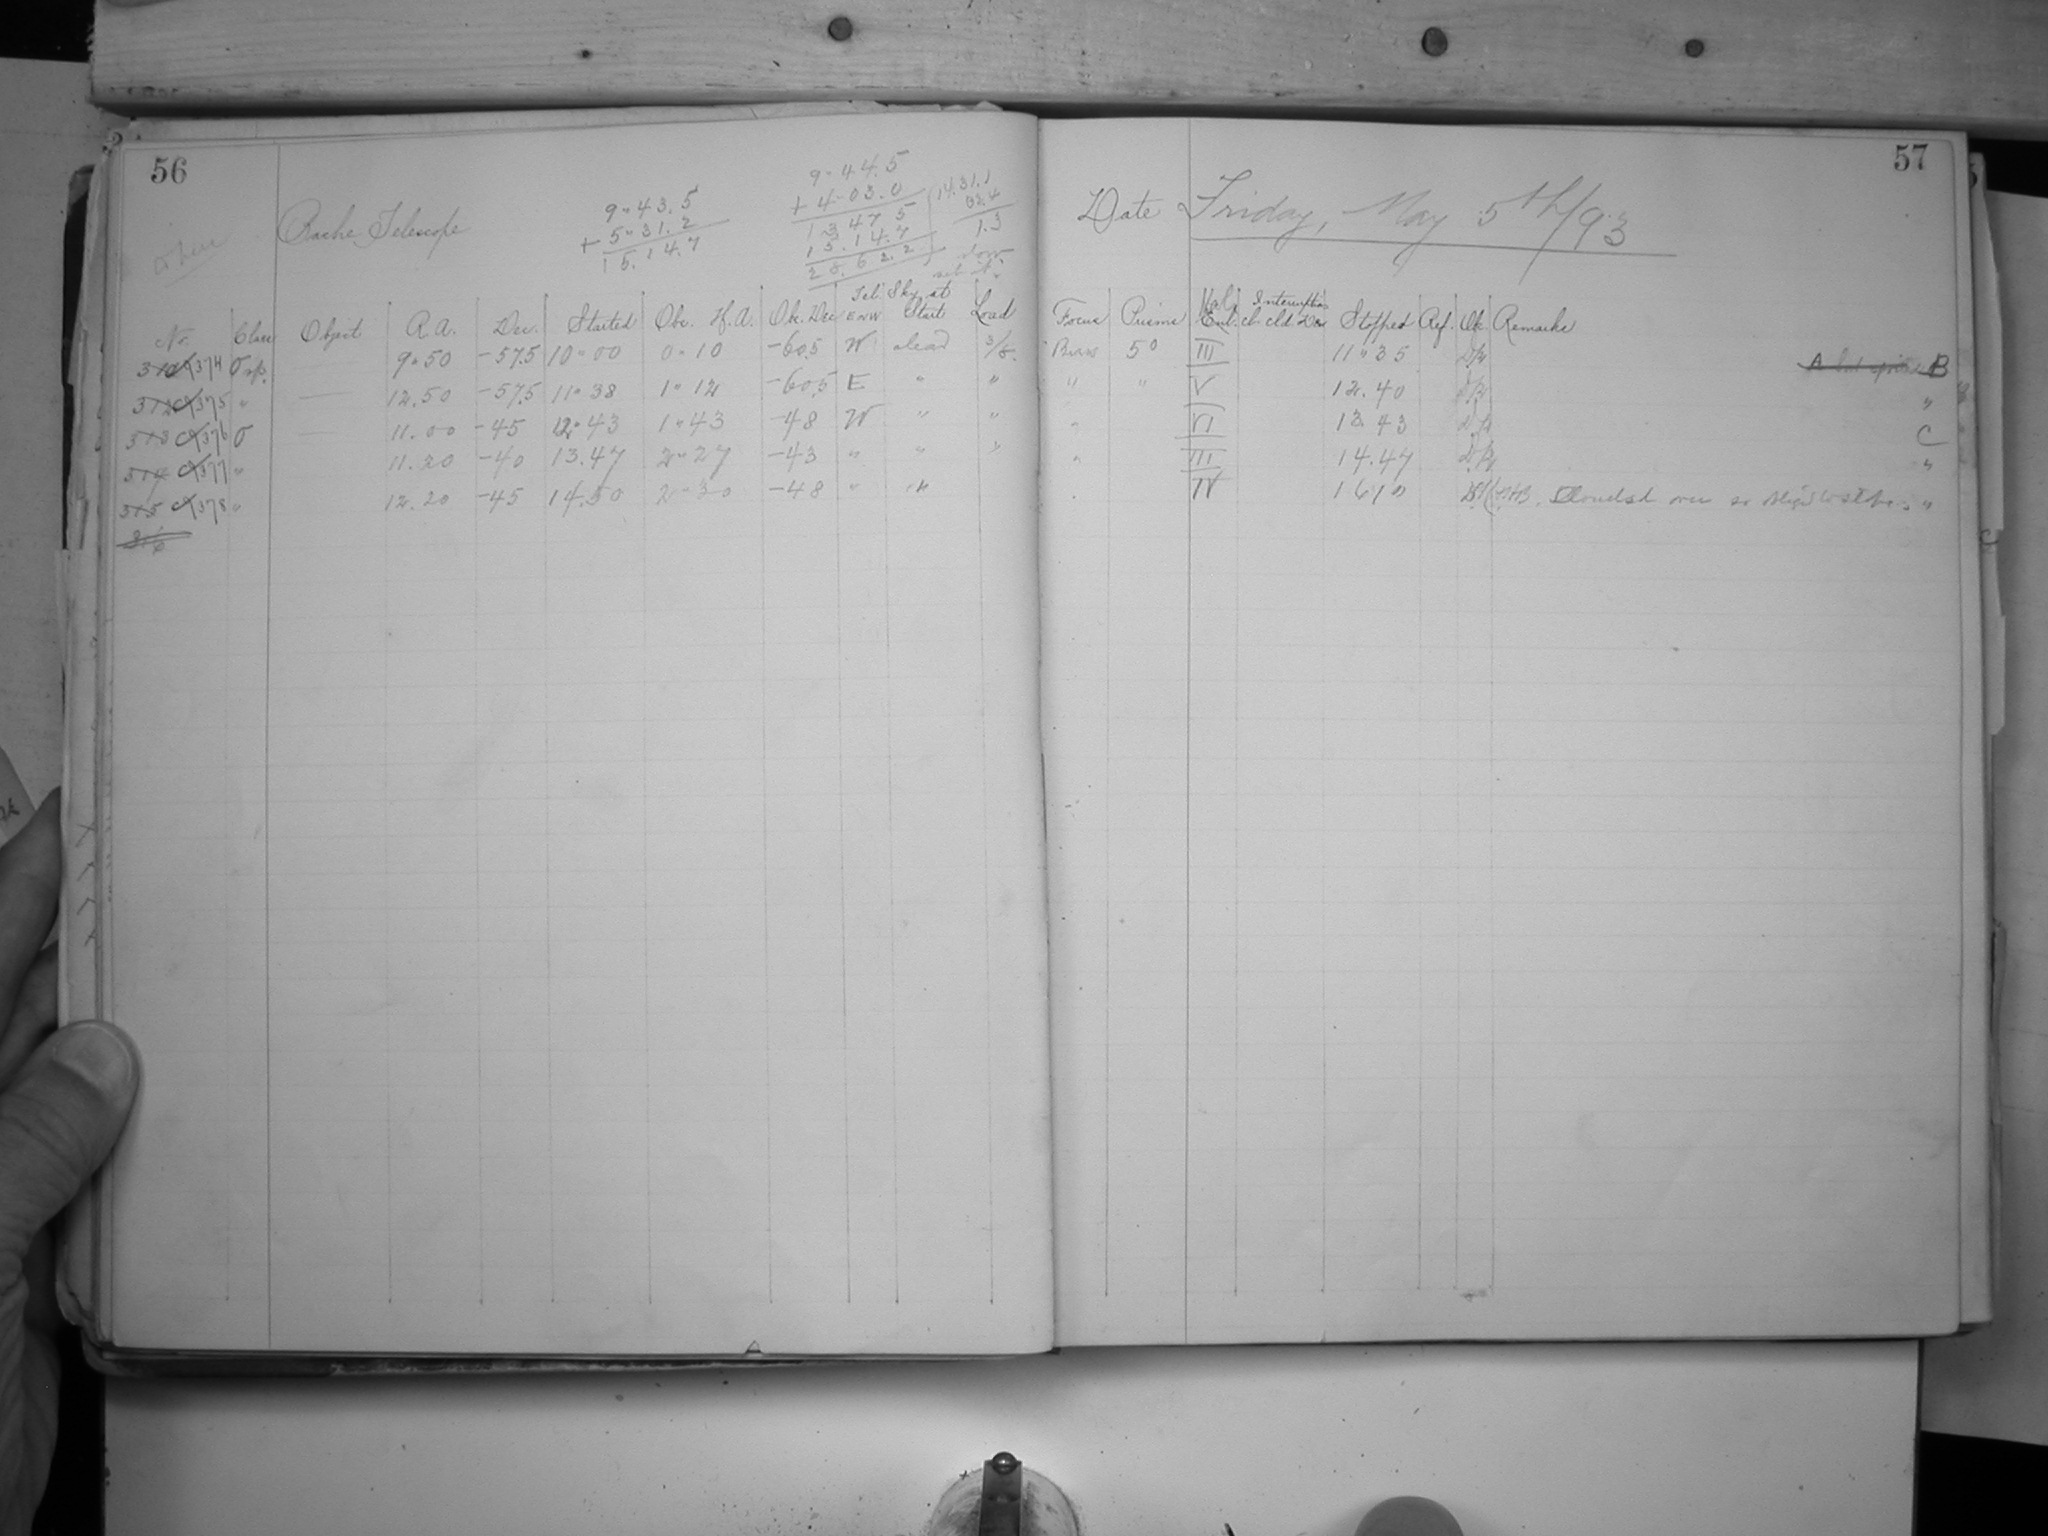 56
57
Bache Telescope
9 " 43.5
+ 5 " 31.2
15.14.7
9 " 44.5
+ 4 " 03.0
13 47 5
15.14.7
14.31.1
1.3
Date Friday, May 5th/93
No. Class Object R.A. Dec. Started Obs. H.A. Obs. Dec Tel. E or W Sky at Start Load Focus Prisms Stopped Ref. Ob. Remarks
374 9 " 50 -57.5 10 " 00 0 " 10 -60.5 W clear Brass 5° III 11 " 35 B
375 " 12.50 -57.5 11 " 38 1 " 12 -60.5 E " " " " V 12.40 "
376 11.00 -45 12 " 43 1 " 43 -48 W " " " VI 13.43 C
377 " 11.20 -40 13.47 2 " 27 -43 " " " " III 14.47 "
378 " 12.20 -45 14.50 2 " 30 -48 " " IV 1610 Clouded over so "
316